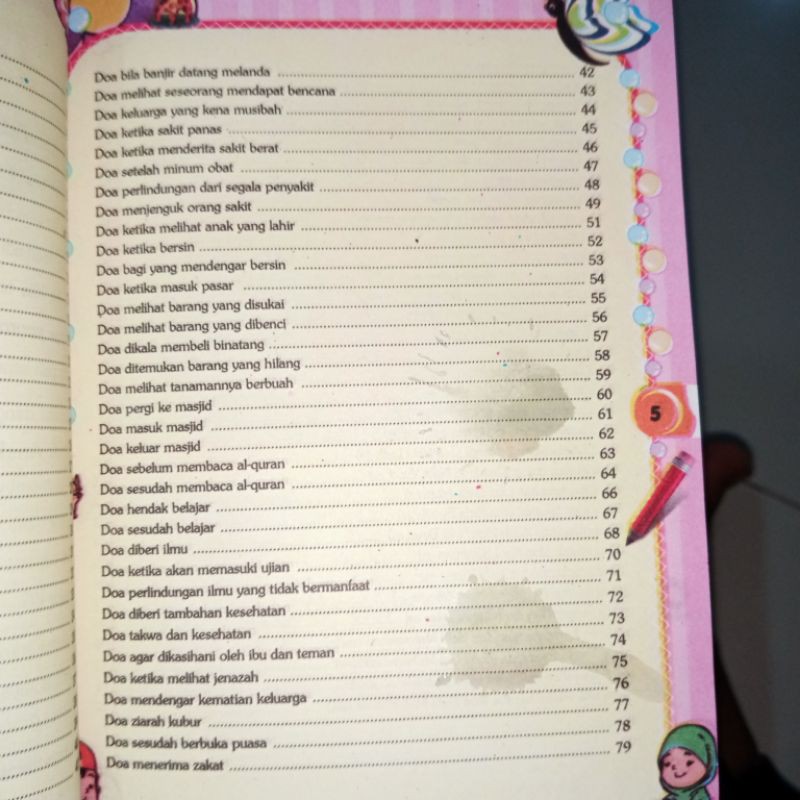 Doa bila banjir datang melanda ........ 42
Doa melihat seseorang mendapat bencana ........ 43
Doa keluarga yang kena musibah ........ 44
Doa ketika sakit panas ........ 45
Doa ketika menderita sakit berat ........ 46
Doa setelah minum obat ........ 47
Doa perlindungan dari segala penyakit ........ 48
Doa menjenguk orang sakit ........ 49
Doa ketika melihat anak yang lahir ........ 51
Doa ketika bersin ........ 52
Doa bagi yang mendengar bersin ........ 53
Doa ketika masuk pasar ........ 54
Doa melihat barang yang disukai ........ 55
Doa melihat barang yang dibenci ........ 56
Doa dikala membeli binatang ........ 57
Doa ditemukan barang yang hilang ........ 58
Doa melihat tanamannya berbuah ........ 59
Doa pergi ke masjid ........ 60
Doa masuk masjid ........ 61
Doa keluar masjid ........ 62
Doa sebelum membaca al-quran ........ 63
Doa sesudah membaca al-quran ........ 64
Doa hendak belajar ........ 66
Doa sesudah belajar ........ 67
Doa diberi ilmu ........ 68
Doa ketika akan memasuki ujian ........ 70
Doa perlindungan ilmu yang tidak bermanfaat ........ 71
Doa diberi tambahan kesehatan ........ 72
Doa takwa dan kesehatan ........ 73
Doa agar dikasihani oleh ibu dan teman ........ 74
Doa ketika melihat jenazah ........ 75
Doa mendengar kematian keluarga ........ 76
Doa ziarah kubur ........ 77
Doa sesudah berbuka puasa ........ 78
Doa menerima zakat ........ 79
5